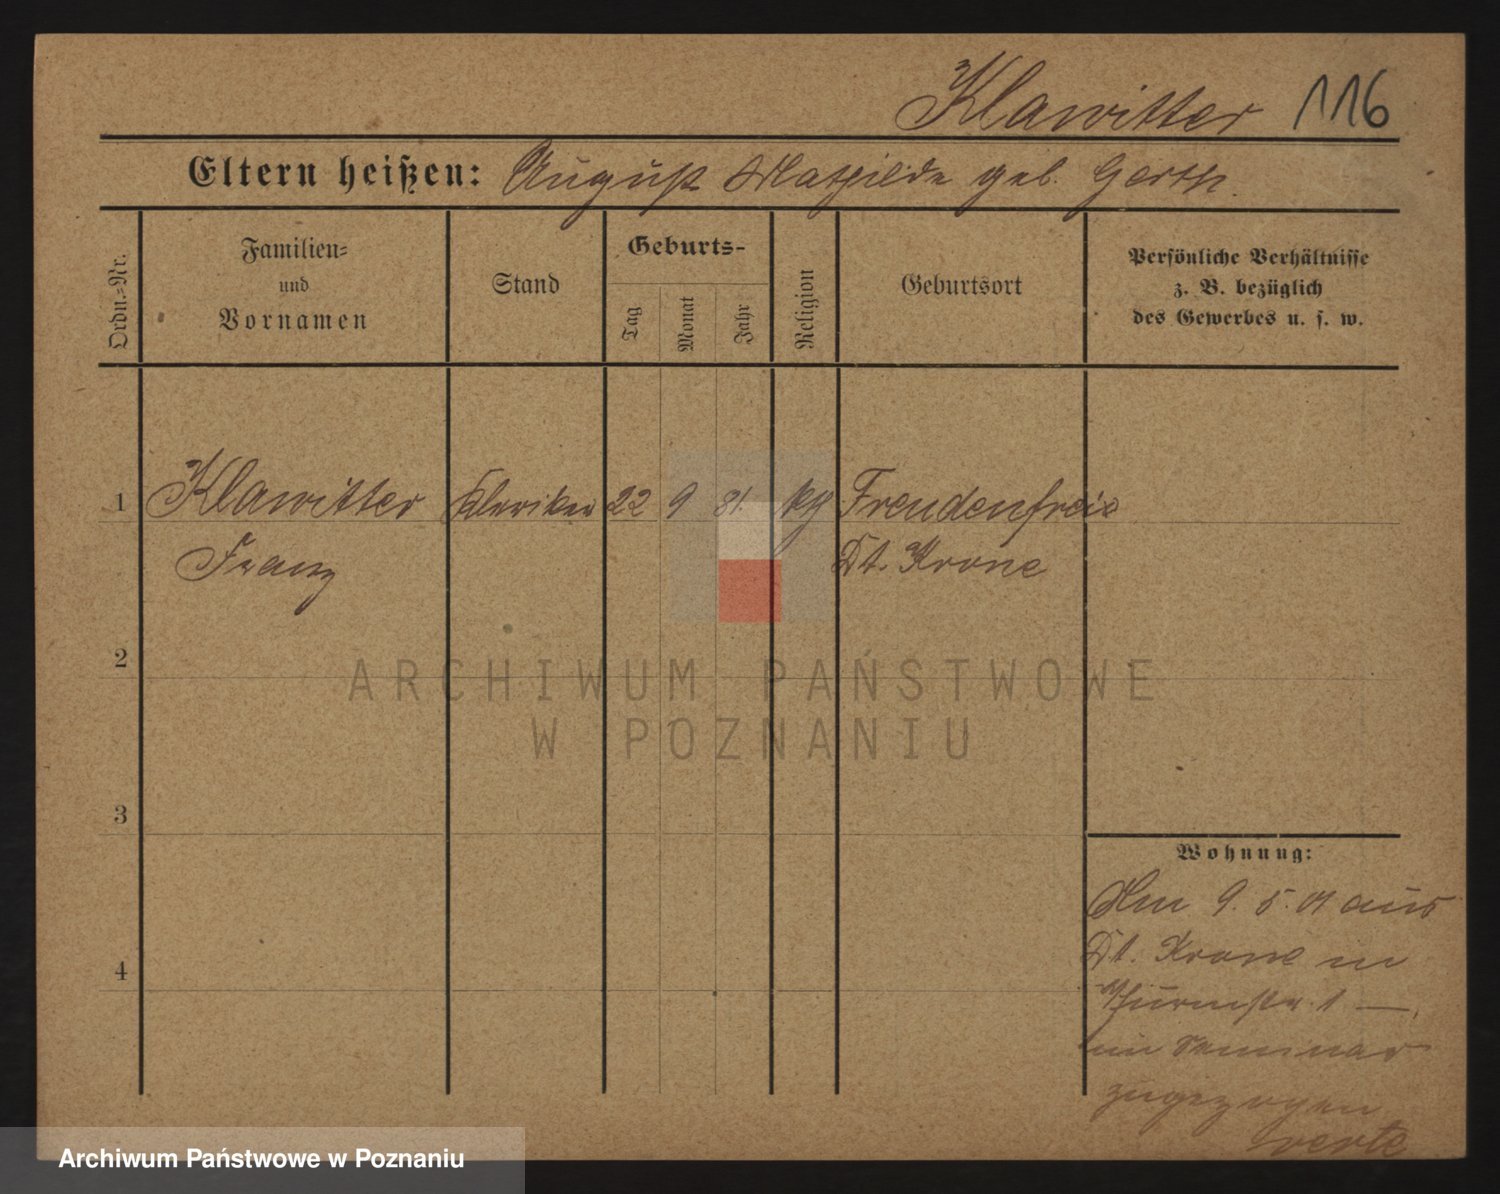 Klawitter 116
Eltern heißen: August Mathilde geb. Gerth.
Ordn.-Nr.
Familien-
und
Vornamen
Stand
Geburts-
Tag
Monat
Jahr
Religion
Geburtsort
Persönliche Verhältnisse
z. B. bezüglich
des Gewerbes u. s. w.
1 Klawitter Kleriker 22 9 81. kth Freudenfreie
Franz Dt. Krone
2
3
4
Wohnung:
Am 9. 5. 01 aus
Dt. Krone in
Thurmstr. 1 —
im Seminar
zugezogen
verte
ARCHIWUM PAŃSTWOWE
W POZNANIU
Archiwum Państwowe w Poznaniu